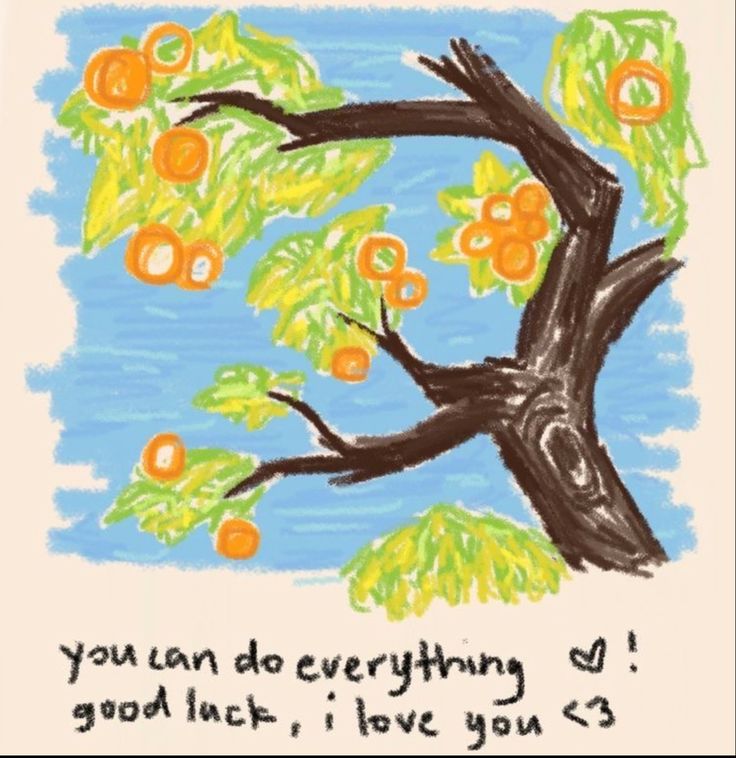 you can do everything ♡!
good luck, i love you <3